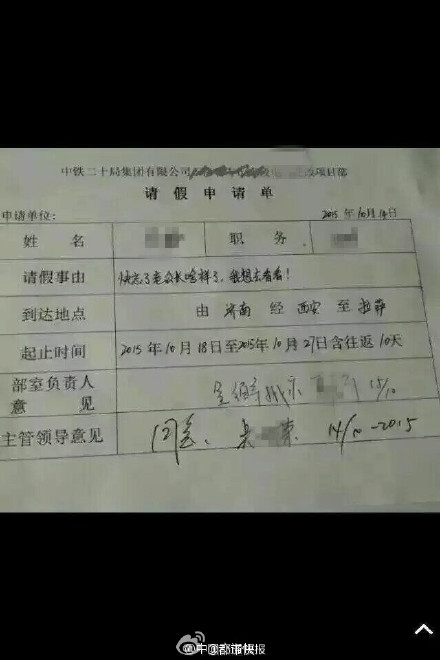 中铁二十局集团有限公司 改项目部
请假申请单
申请单位: 2015年10月14日
姓 名 职 务
请假事由 快忘了老公长啥样了,我想去看看!
到达地点 由 济南 经 西安 至 拉萨
起止时间 2015年10月18日至2015年10月27日含往返10天
部室负责人
意 见 15/10
主管领导意见 同意、吴 荣 14/10-2015